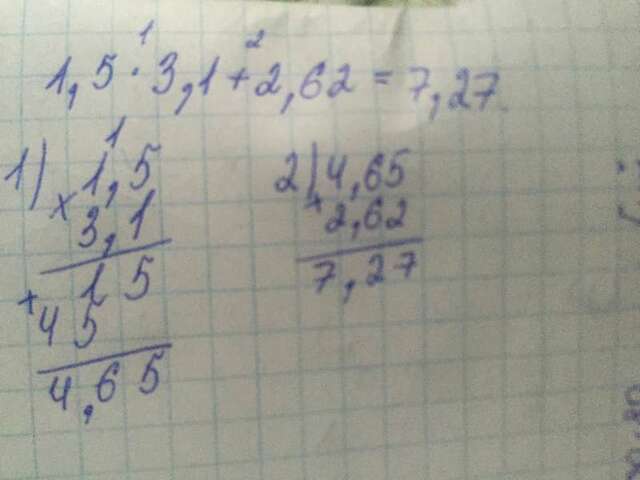 1,5 · 3,1 + 2,62 = 7,27
1 2
1) × 1,5
3,1
1 5
+ 4 5
4,6 5
2) 4,65
+ 2,62
7,27